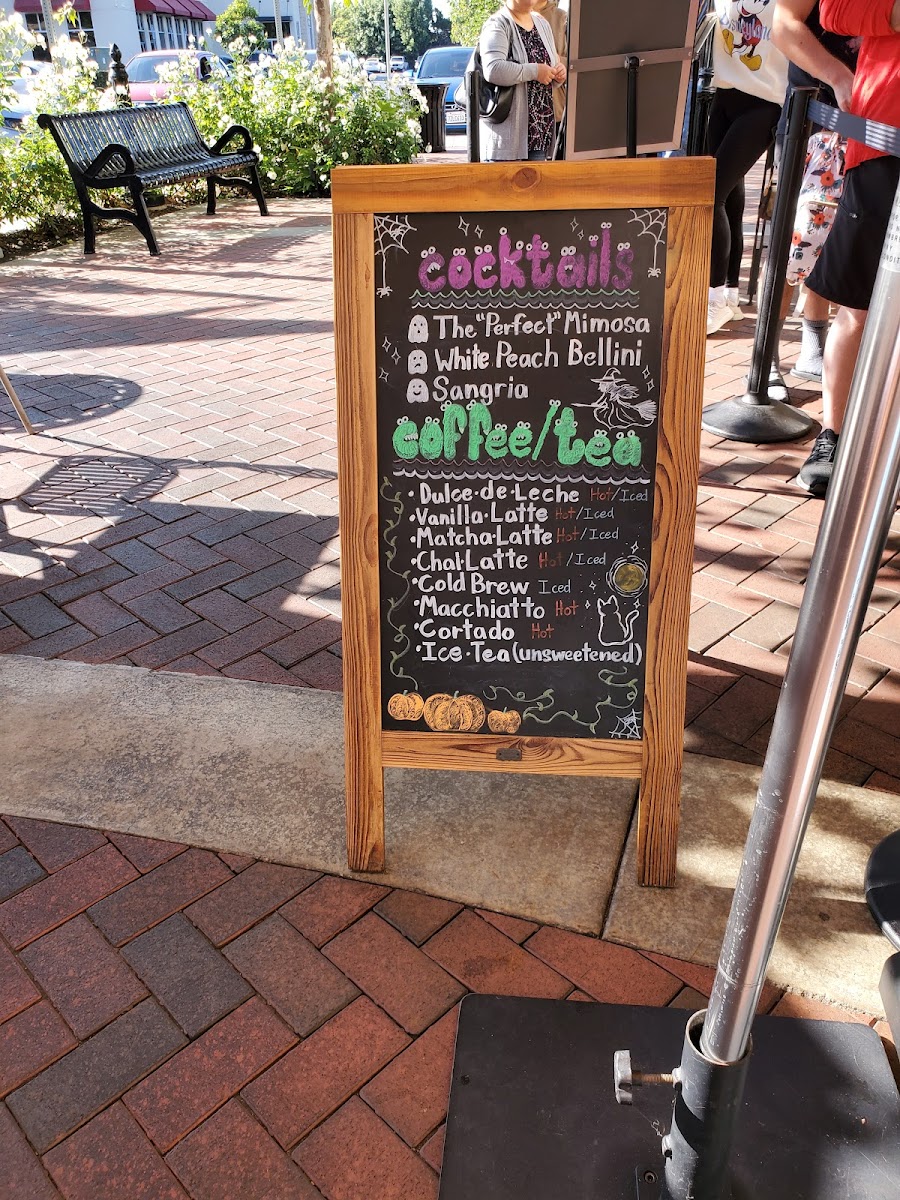 cocktails
The "Perfect" Mimosa
White Peach Bellini
Sangria
coffee/tea
• Dulce de Leche Hot/Iced
• Vanilla Latte Hot/Iced
• Matcha Latte Hot/Iced
• Chai Latte Hot/Iced
• Cold Brew Iced
• Macchiatto Hot
• Cortado Hot
• Ice Tea (unsweetened)